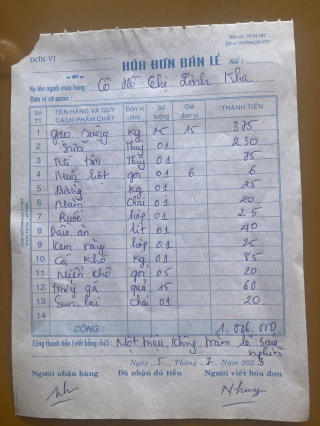 ĐƠN VỊ
HÓA ĐƠN BÁN LẺ Số
Họ tên người mua hàng : Cô Hồ Thị Kha
Đơn vị cơ quan :
Số TT TÊN HÀNG VÀ QUY CÁCH PHẨM CHẤT Đơn vị tính Số lượng Giá đơn vị THÀNH TIỀN
1 kg 25 15 375
2 Sữa Thùy 01 230
3 Mì tôm Thùy 01 75
4 gói 01 6 6
5 Đường kg 01 25
6 Mắm chai 01 20
7 Ruốc hộp 01 25
8 Dầu ăn lít 01 40
9 Kem răng hộp 01 25
10 Cá khô kg 01 85
11 Miến khô gói 05 20
12 Trứng gà quả 15 60
13 Sunlai chai 01 20
14
CỘNG : 1.006.000
Cộng thành tiền (viết bằng chữ) : Một triệu, không trăm lẻ sáu nghìn
Ngày 5 Tháng 7 Năm
Người nhận hàng Đã nhận đủ tiền Người viết hóa đơn
Nhung